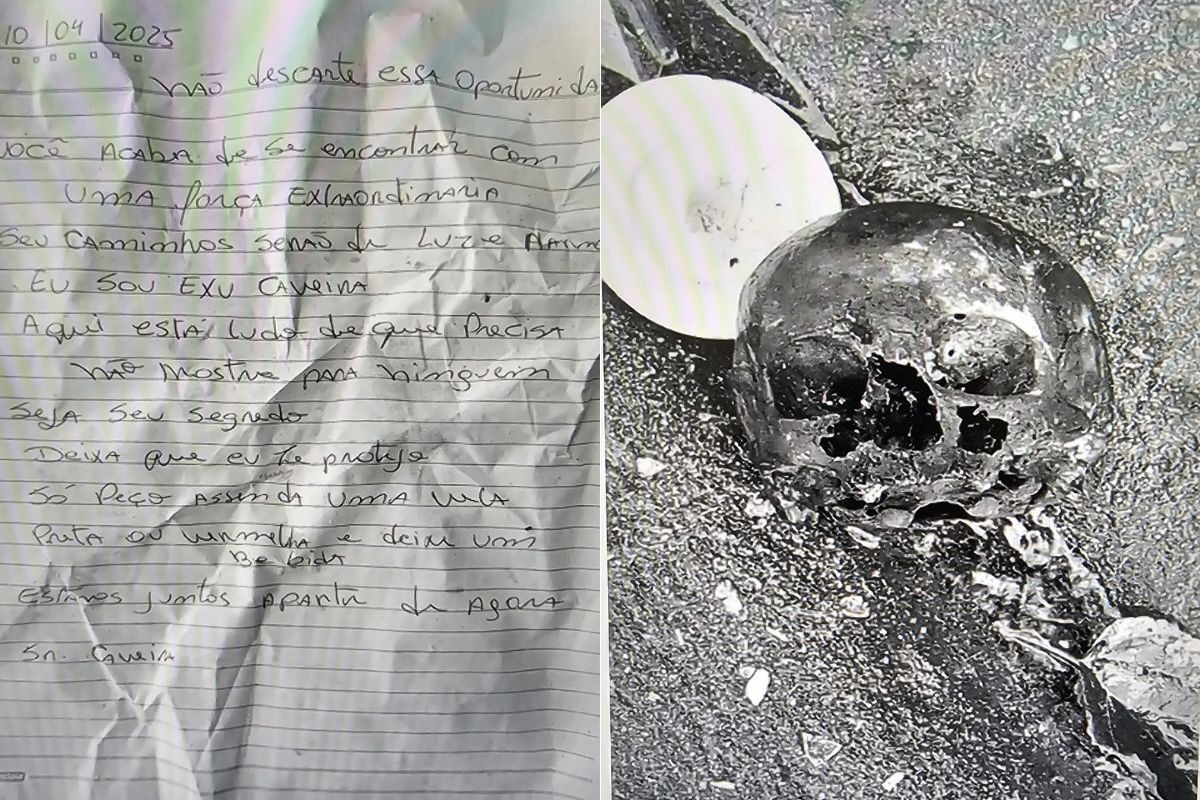 10/04/2025
NÃO descarte essa oportunida
Você ACABA de se encontrar com
UMA força EXTRAORDINARIA
Seu CAMINHOS SERÃO de LUZ e
EU SOU EXU CAVEIRA
Aqui está tudo de que Precisa
NÃO Mostre PARA Ninguem
SEJA Seu Segredo
DEIXA que eu te proteja
SÓ Peço ASSENDA UMA VELA
Preta ou vermelha e deixe um
Bebida
ESTAMOS juntos APARTIR de AGORA
Sr. CAVEIRA